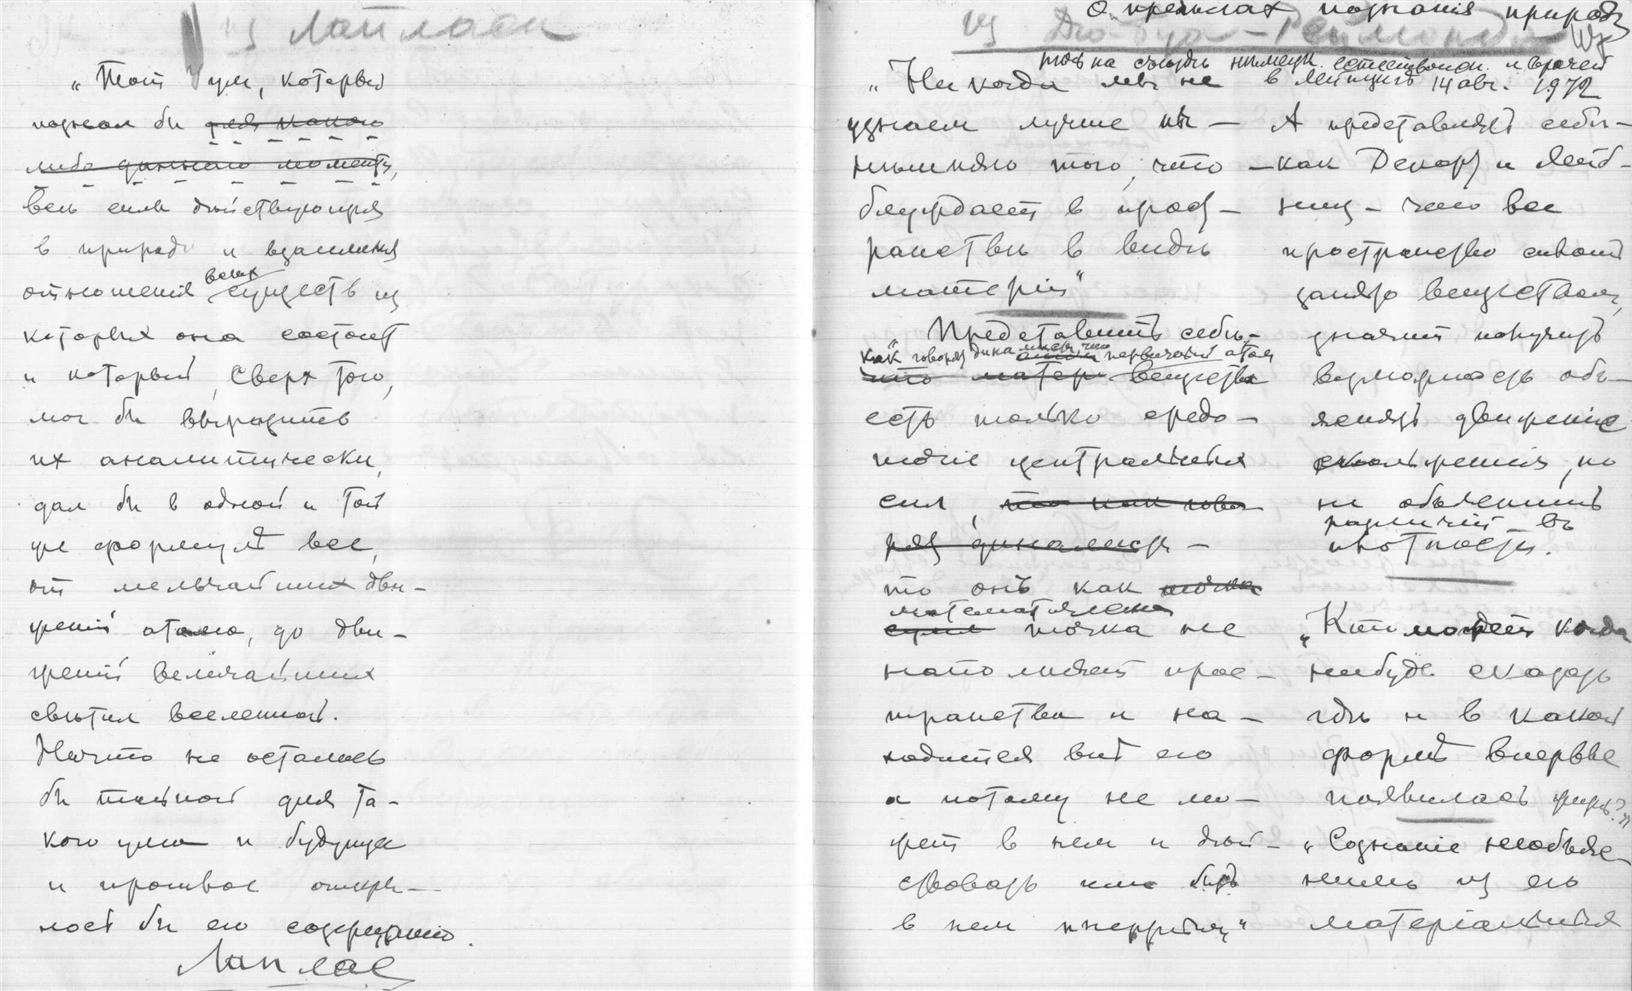 Из Лапласа
„Тот ум, который
познал бы для какого
либо данного момента,
весь силы действующия
в природе и взаимныя
отношения всех существ из
которых она состоит
и который, сверх того,
мог бы выразить
их аналитически,
дал бы в одной и той
же формуле все,
от мельчайших дви-
жений атома, до дви-
жений величайших
светил вселенной.
Ничто не осталось
бы тайной для та-
кого ума и будущее
и прошлое откры-
лось бы его созерцанию.
Лаплас
О пределах познания природы
Из Дю-Буа-Реймонда
на съезде немецк. естествоисп. и врачей
в Лейпциге 14 авг. 1972
„Никогда мы не
узнаем лучше ны-
нешняго того, что
блуждает в прост-
ранстве в виде
материи"
„Представить себе,
как говорят динамисты что первичный атом
что матер вещества
есть только средо-
точие центральных
сил, то как гово-
рят динамисты -
то онъ как точка
математическая
точка не
наполняет прос-
транства и на-
ходится вне его
а потому не мо-
жет в нем и дей-
ствовать или быть
в нем инертным"
А представлять себе-
-как Декарт и Лейб-
ниц - что все
пространство сплошь
занято веществом,
значит получить
возможность объ-
яснять движение
скольжения, но
не объяснить
различий въ
плотности.
„Кто может когда
нибудь сказать
где и в какой
форме впервые
появилась жизнь?"
„Сознание необъяс-
нимо из его
материальных